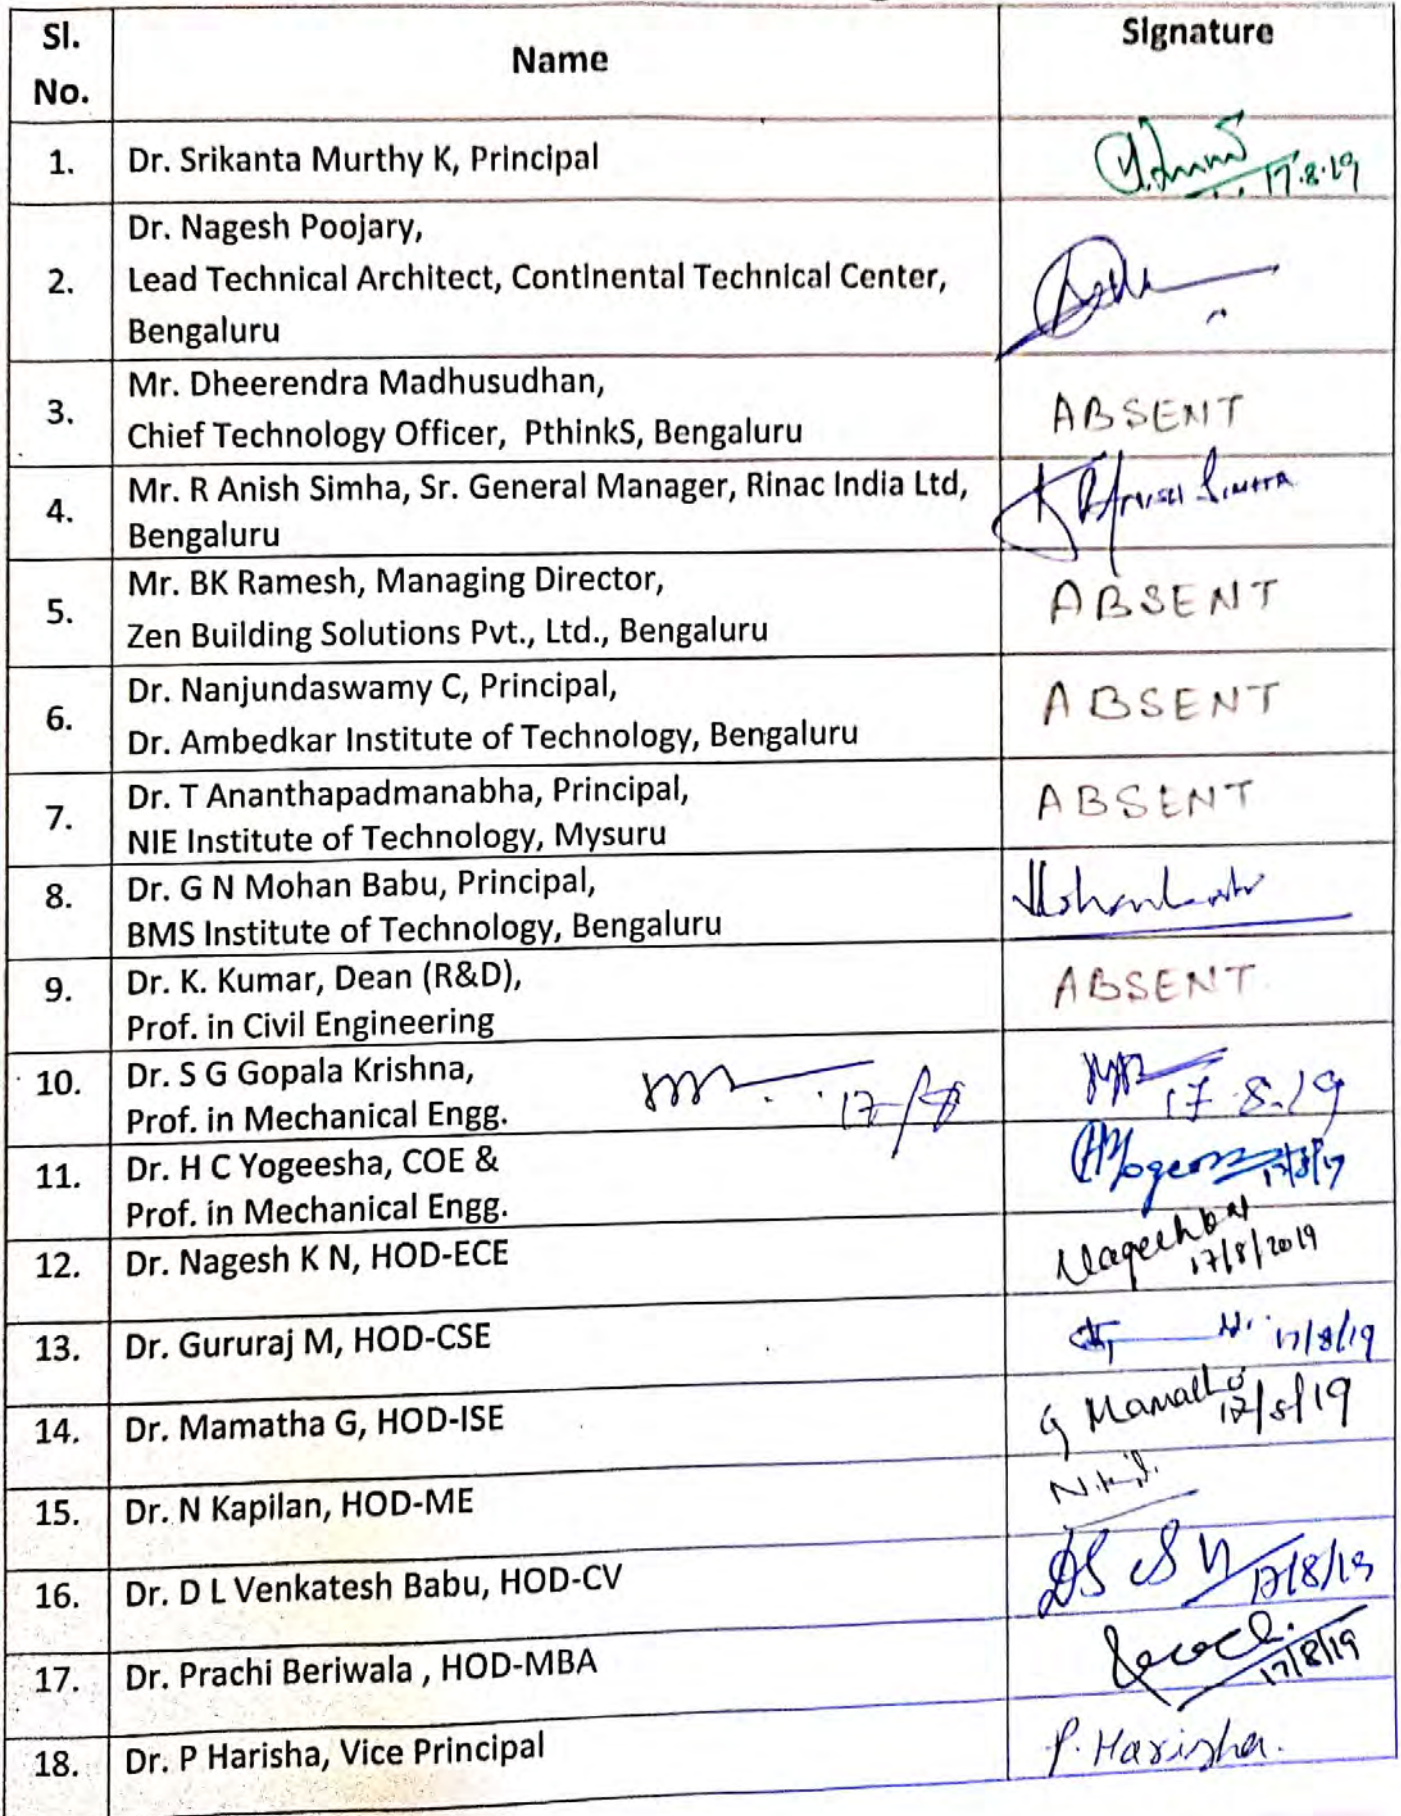 Sl.
No.
Name
Signature
1.
Dr. Srikanta Murthy K, Principal
17.8.19
2.
Dr. Nagesh Poojary,
Lead Technical Architect, Continental Technical Center,
Bengaluru
3.
Mr. Dheerendra Madhusudhan,
Chief Technology Officer, PthinkS, Bengaluru
ABSENT
4.
Mr. R Anish Simha, Sr. General Manager, Rinac India Ltd,
Bengaluru
R Anish Simha
5.
Mr. BK Ramesh, Managing Director,
Zen Building Solutions Pvt., Ltd., Bengaluru
ABSENT
6.
Dr. Nanjundaswamy C, Principal,
Dr. Ambedkar Institute of Technology, Bengaluru
ABSENT
7.
Dr. T Ananthapadmanabha, Principal,
NIE Institute of Technology, Mysuru
ABSENT
8.
Dr. G N Mohan Babu, Principal,
BMS Institute of Technology, Bengaluru
9.
Dr. K. Kumar, Dean (R&D),
Prof. in Civil Engineering
ABSENT
10.
Dr. S G Gopala Krishna,
Prof. in Mechanical Engg.
17/8
17.8.19
11.
Dr. H C Yogeesha, COE &
Prof. in Mechanical Engg.
12.
Dr. Nagesh K N, HOD-ECE
17/8/2019
13.
Dr. Gururaj M, HOD-CSE
17/8/19
14.
Dr. Mamatha G, HOD-ISE
G Mamatha
17/8/19
15.
Dr. N Kapilan, HOD-ME
16.
Dr. D L Venkatesh Babu, HOD-CV
17/8/19
17.
Dr. Prachi Beriwala , HOD-MBA
17/8/19
18.
Dr. P Harisha, Vice Principal
P. Harisha.